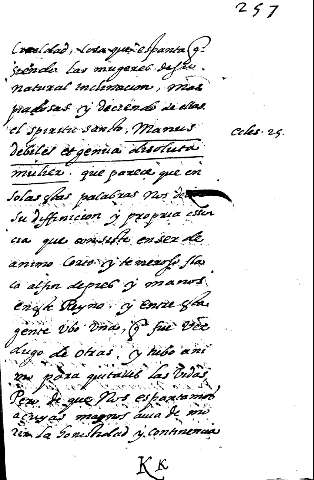 257
Crueldad, cosa que espanta q̃
siendo las mugeres de su
natural inclinacion, mas
piadosas y diciendo de ellas
el spiritu sancto, Manus
debiles et genua disoluta
mulier, que parece que en
solas estas palabras nos
su diffinicion y propria essen
cia que consiste en ser de
animo corto y temeroso fla
ca al fin de pies y manos
en este Reyno y entre esta
gente ubo una, q̃ fue ver
dugo de otras y tubo ani
mo para quitalles las vidas
Pero de que nos espantamos
a cuyas manos avia de mo
rir la honestidad y continencia
Eccles. 25.
Kk